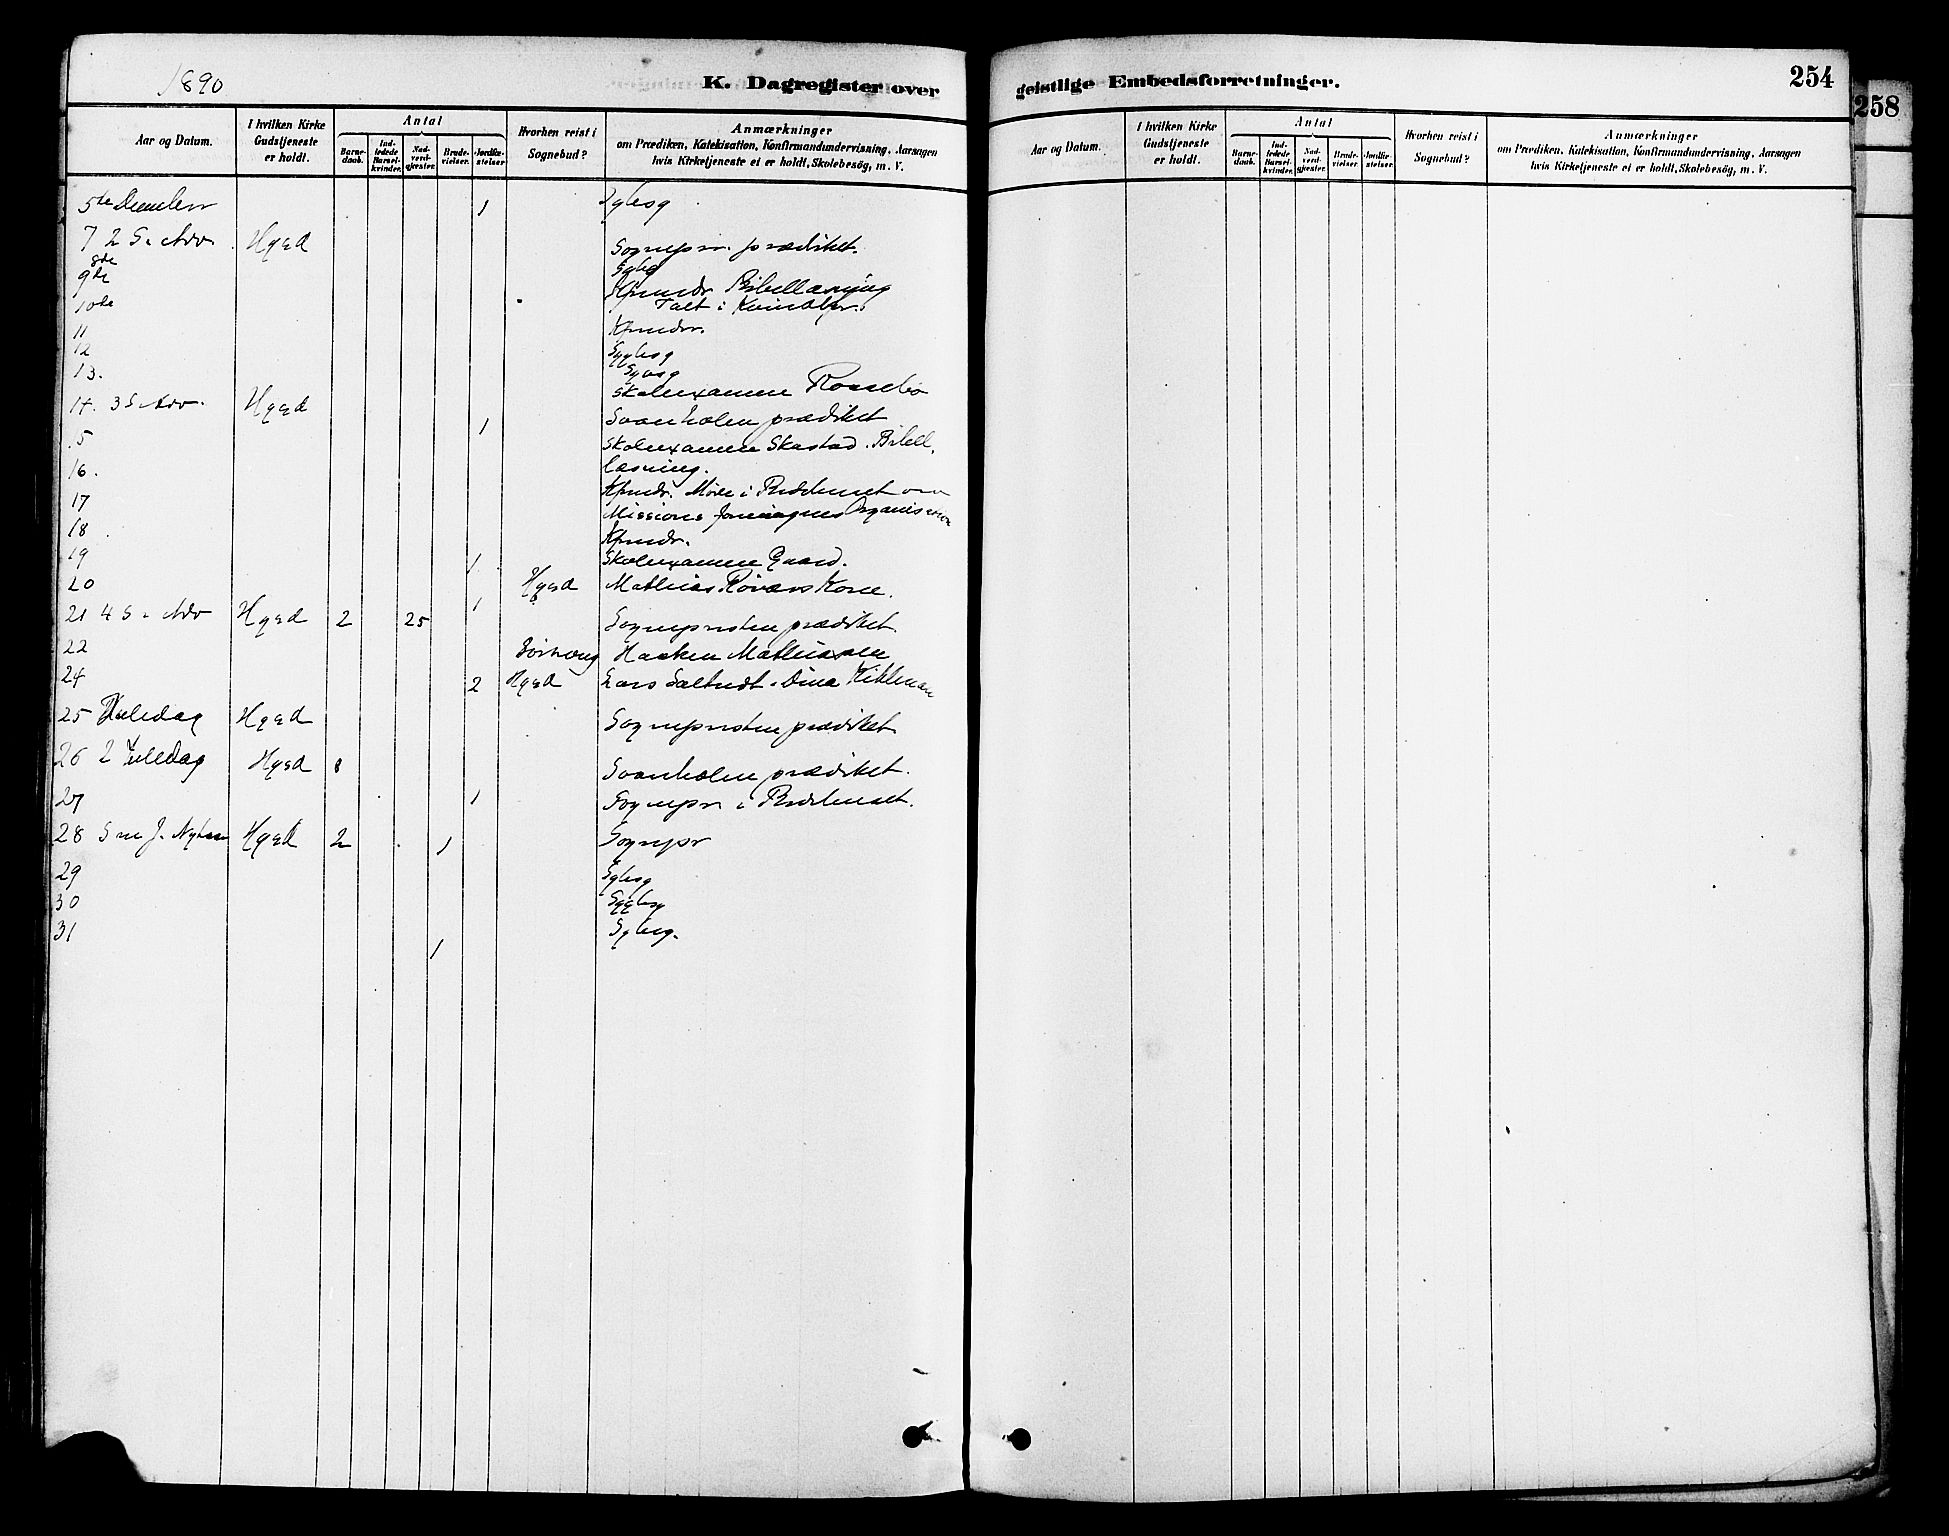 1890
K. Dagregister over
geistlige Embedsforretninger.
254
258
Aar og Datum.
I hvilken Kirke Gudstjeneste er holdt.
Antal
Barnedaab.
Indledede Barselkvinder.
Nadverdgjester.
Brudevielser.
Jordfæstelser.
Hvorhen reist i Sognebud?
Anmærkninger
om Prædiken, Katekisation, Konfirmandundervisning, Aarsagen
hvis Kirketjeneste ei er holdt, Skolebesög, m. V.
Aar og Datum.
I hvilken Kirke Gudstjeneste er holdt.
Antal
Barnedaab.
Indledede Barselkvinder.
Nadverdgjester.
Brudevielser.
Jordfæstelser.
Hvorhen reist i Sognebud?
Anmærkninger
om Prædiken, Katekisation, Konfirmandundervisning, Aarsagen
hvis Kirketjeneste ei er holdt, Skolebesög, m. V.
5te December 1 Sgbesg
7 2 S. i Adv. Hgsd Sognepr. prædiket.
8de
9de Bibellæsning
10de Talt i
11
12 Sygbesg
13. Skolexamen
14. 3 S. i Adv. Hgsd Svanholm prædiket
15 1 Skolexamen Skastad. Bibel
16. læsning.
17 Møde i Bedehuset om
Missionsforeningens
18
19 1 Skolexamen Gaard.
20 Hgsd Mathias Kone.
21 4 S. i Adv Hgsd 2 25 1 Sognepresten prædiket.
22 Haaken Mathiasen
24 2 Hgsd Lars Dina
25 Juledag Hgsd Sognepresten prædiket
26 2 Juledag Hgsd 8 Svanholm prædiket.
27 1 Sognepr i Bedehuset.
28 S. m J. Nytaar Hgsd 2 1 Sognepr
29 Sgbesg
30 Sygbesg
31 1 Sgbesg.